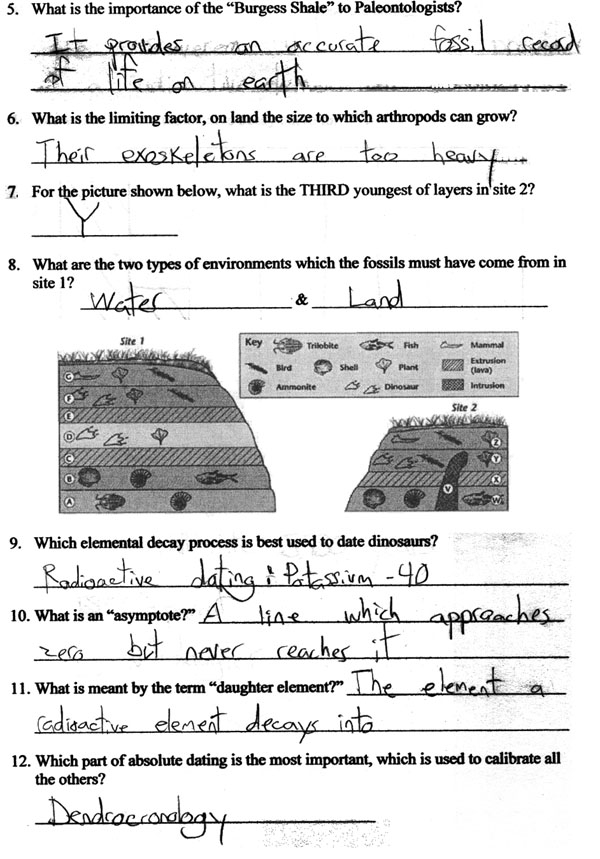 5. What is the importance of the “Burgess Shale” to Paleontologists?
It provides an accurate fossil record
of life on earth
6. What is the limiting factor, on land the size to which arthropods can grow?
Their exoskeletons are too heavy
7. For the picture shown below, what is the THIRD youngest of layers in site 2?
Y
8. What are the two types of environments which the fossils must have come from in
site 1? Water & Land
Site 1
Key Trilobite Fish Mammal
Bird Shell Plant Extrusion (lava)
Ammonite Dinosaur Intrusion
Site 2
G
F
E
D
C
B
A
Z
Y
X
V
W
9. Which elemental decay process is best used to date dinosaurs?
Radioactive dating : Potassium -40
10. What is an “asymptote?” A line which approaches
zero but never reaches it
11. What is meant by the term “daughter element?” The element a
radioactive element decays into
12. Which part of absolute dating is the most important, which is used to calibrate all
the others?
Dendrocronology